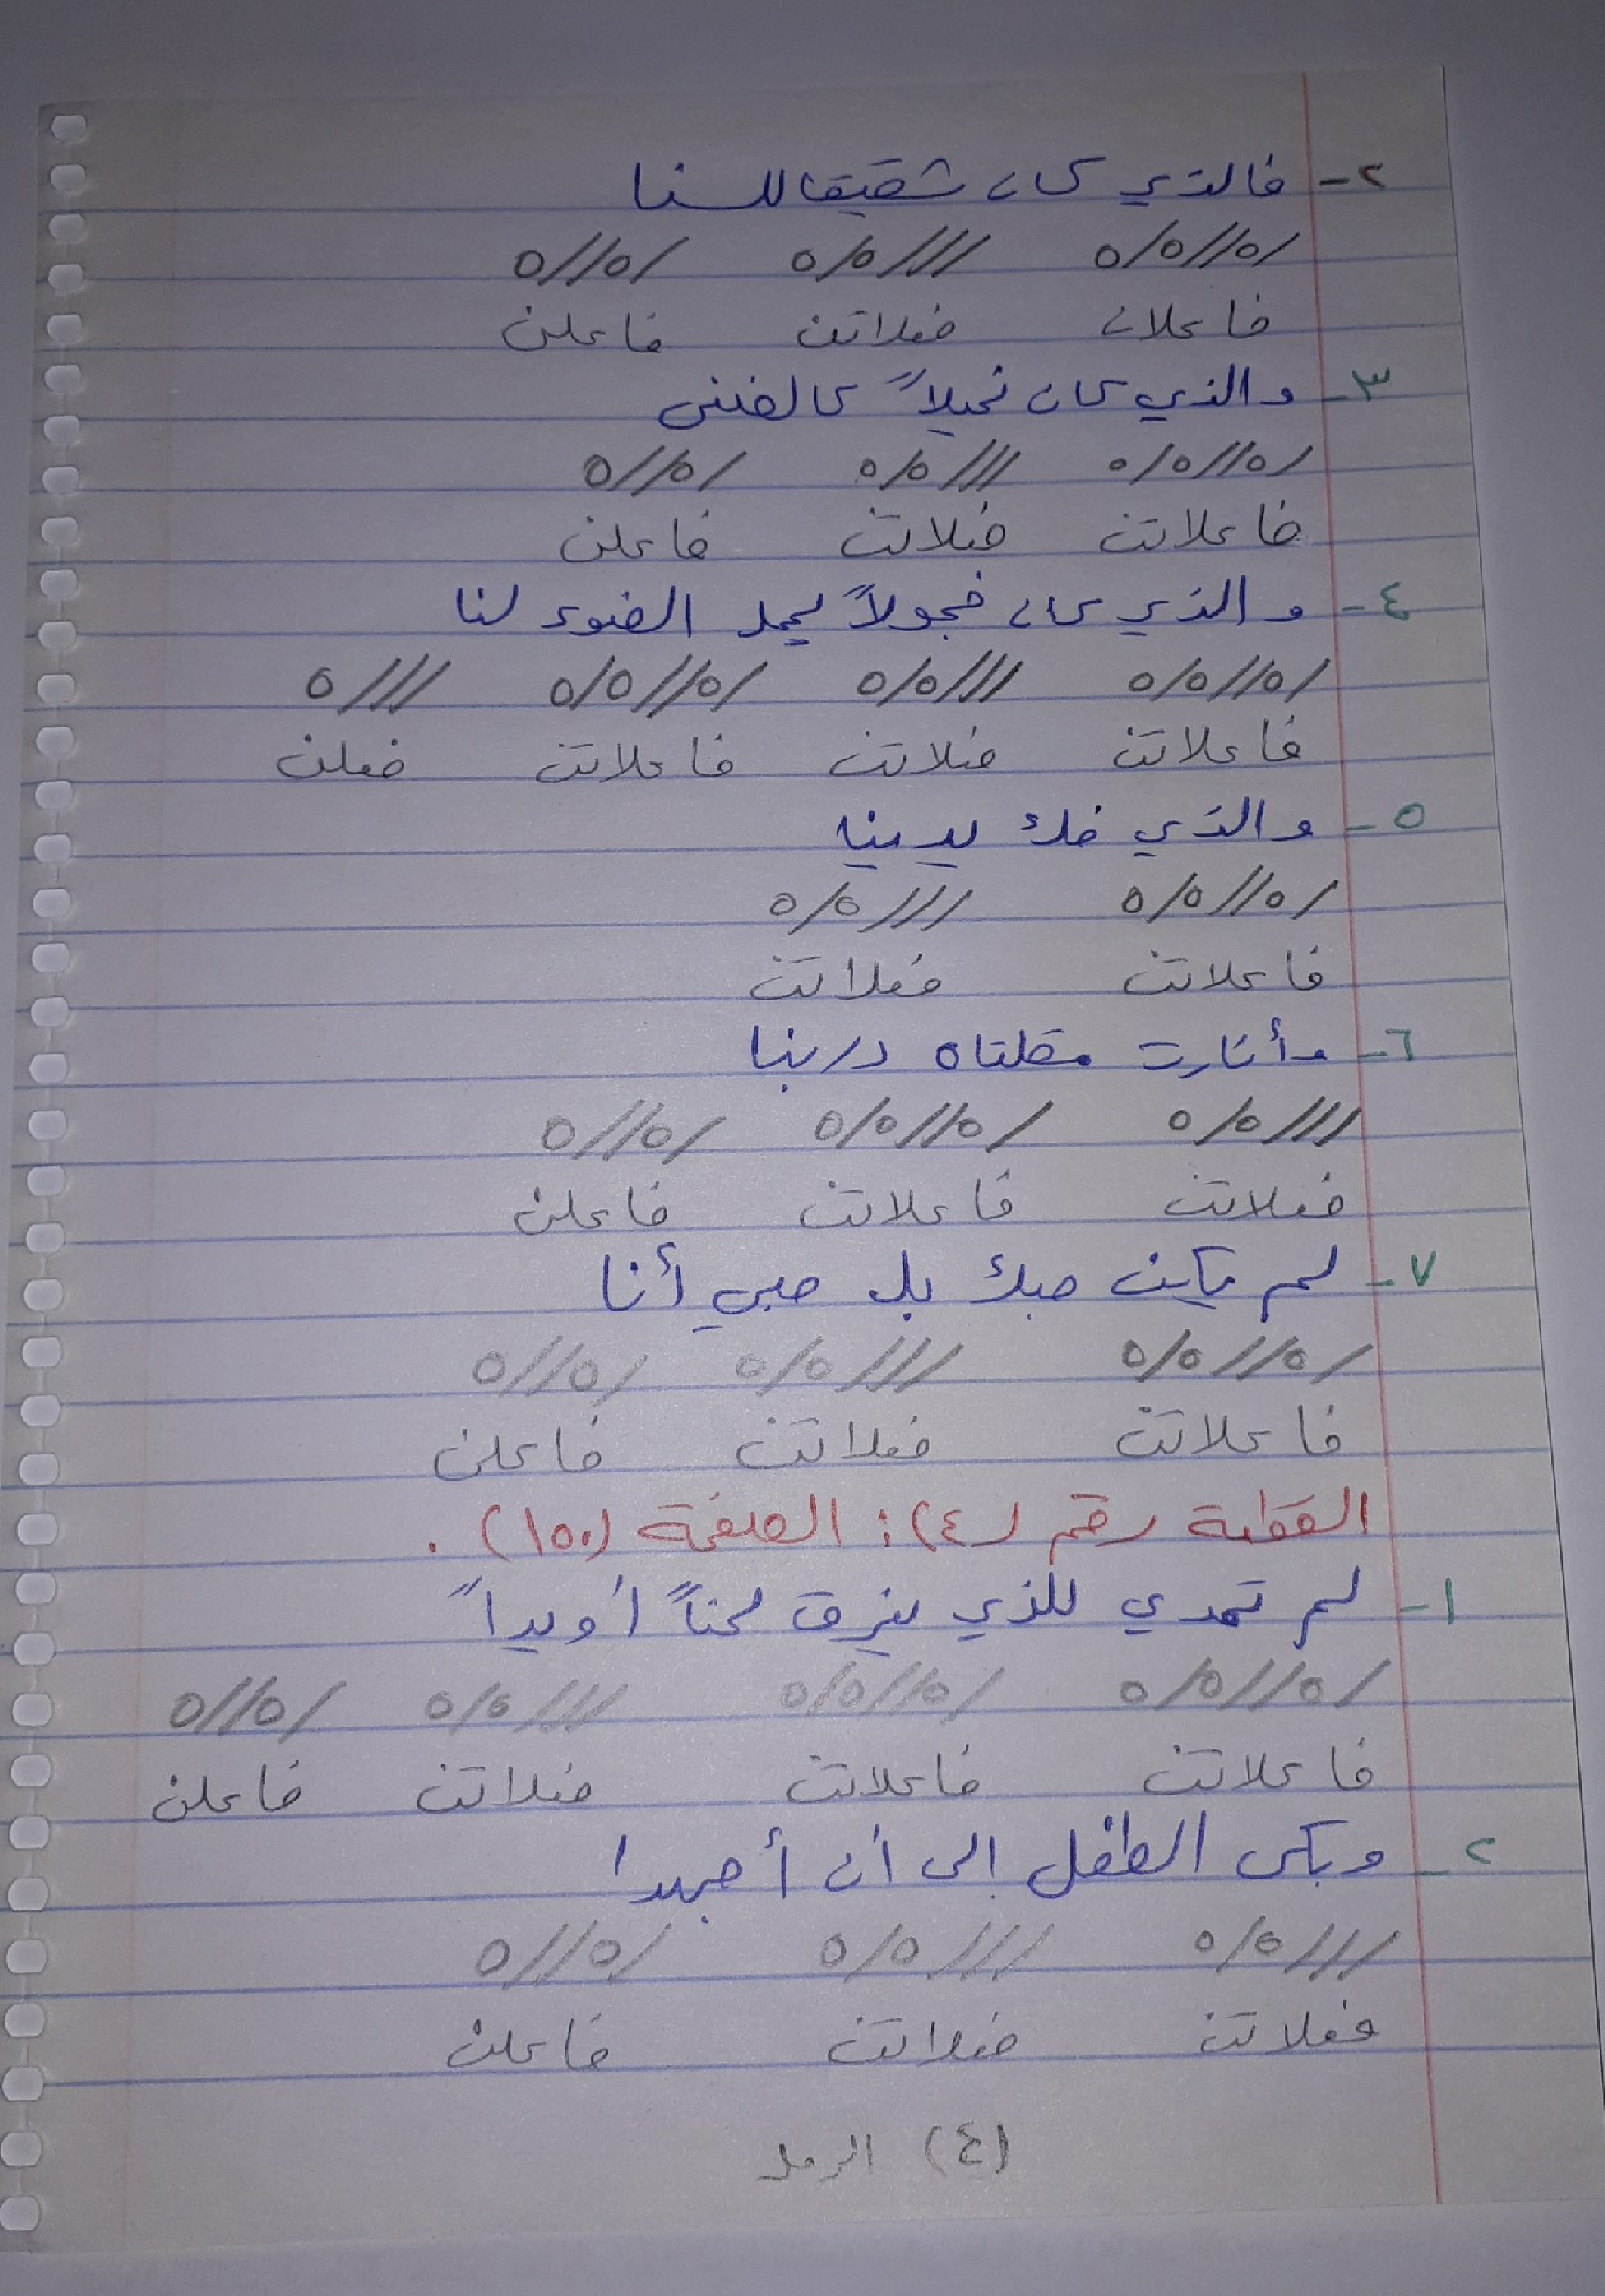 ٢- فالذي كان شقيقا للسنا
/ه//ه/ه ///ه/ه /ه//ه
فاعلات فعلاتن فاعلن
٣- والذي كان نحيلاً كالضنى
/ه//ه/ه ///ه/ه /ه//ه
فاعلاتن فعلاتن فاعلن
٤- والذي كان خجولاً يحمل الضوء لنا
/ه//ه/ه ///ه/ه /ه//ه/ه ///ه
فاعلاتن فعلاتن فاعلاتن فعلن
٥- والذي فك يدينا
/ه//ه/ه ///ه/ه
فاعلاتن فعلاتن
٦- وأنارت مقلتاه دربنا
///ه/ه /ه//ه/ه /ه//ه
فعلاتن فاعلاتن فاعلن
٧- لم يكن حبك بل حبي أنا
/ه//ه/ه ///ه/ه /ه//ه
فاعلاتن فعلاتن فاعلن
القطعة رقم (٤): الصفحة (١٥٠).
١- لم تمدي للذي يغرق لحناً أو يداً
/ه//ه/ه /ه//ه/ه ///ه/ه /ه//ه
فاعلاتن فاعلاتن فعلاتن فاعلن
٢- وبكى الطفل إلى أن أجهدا
///ه/ه ///ه/ه /ه//ه
فعلاتن فعلاتن فاعلن
(٤) الرمل